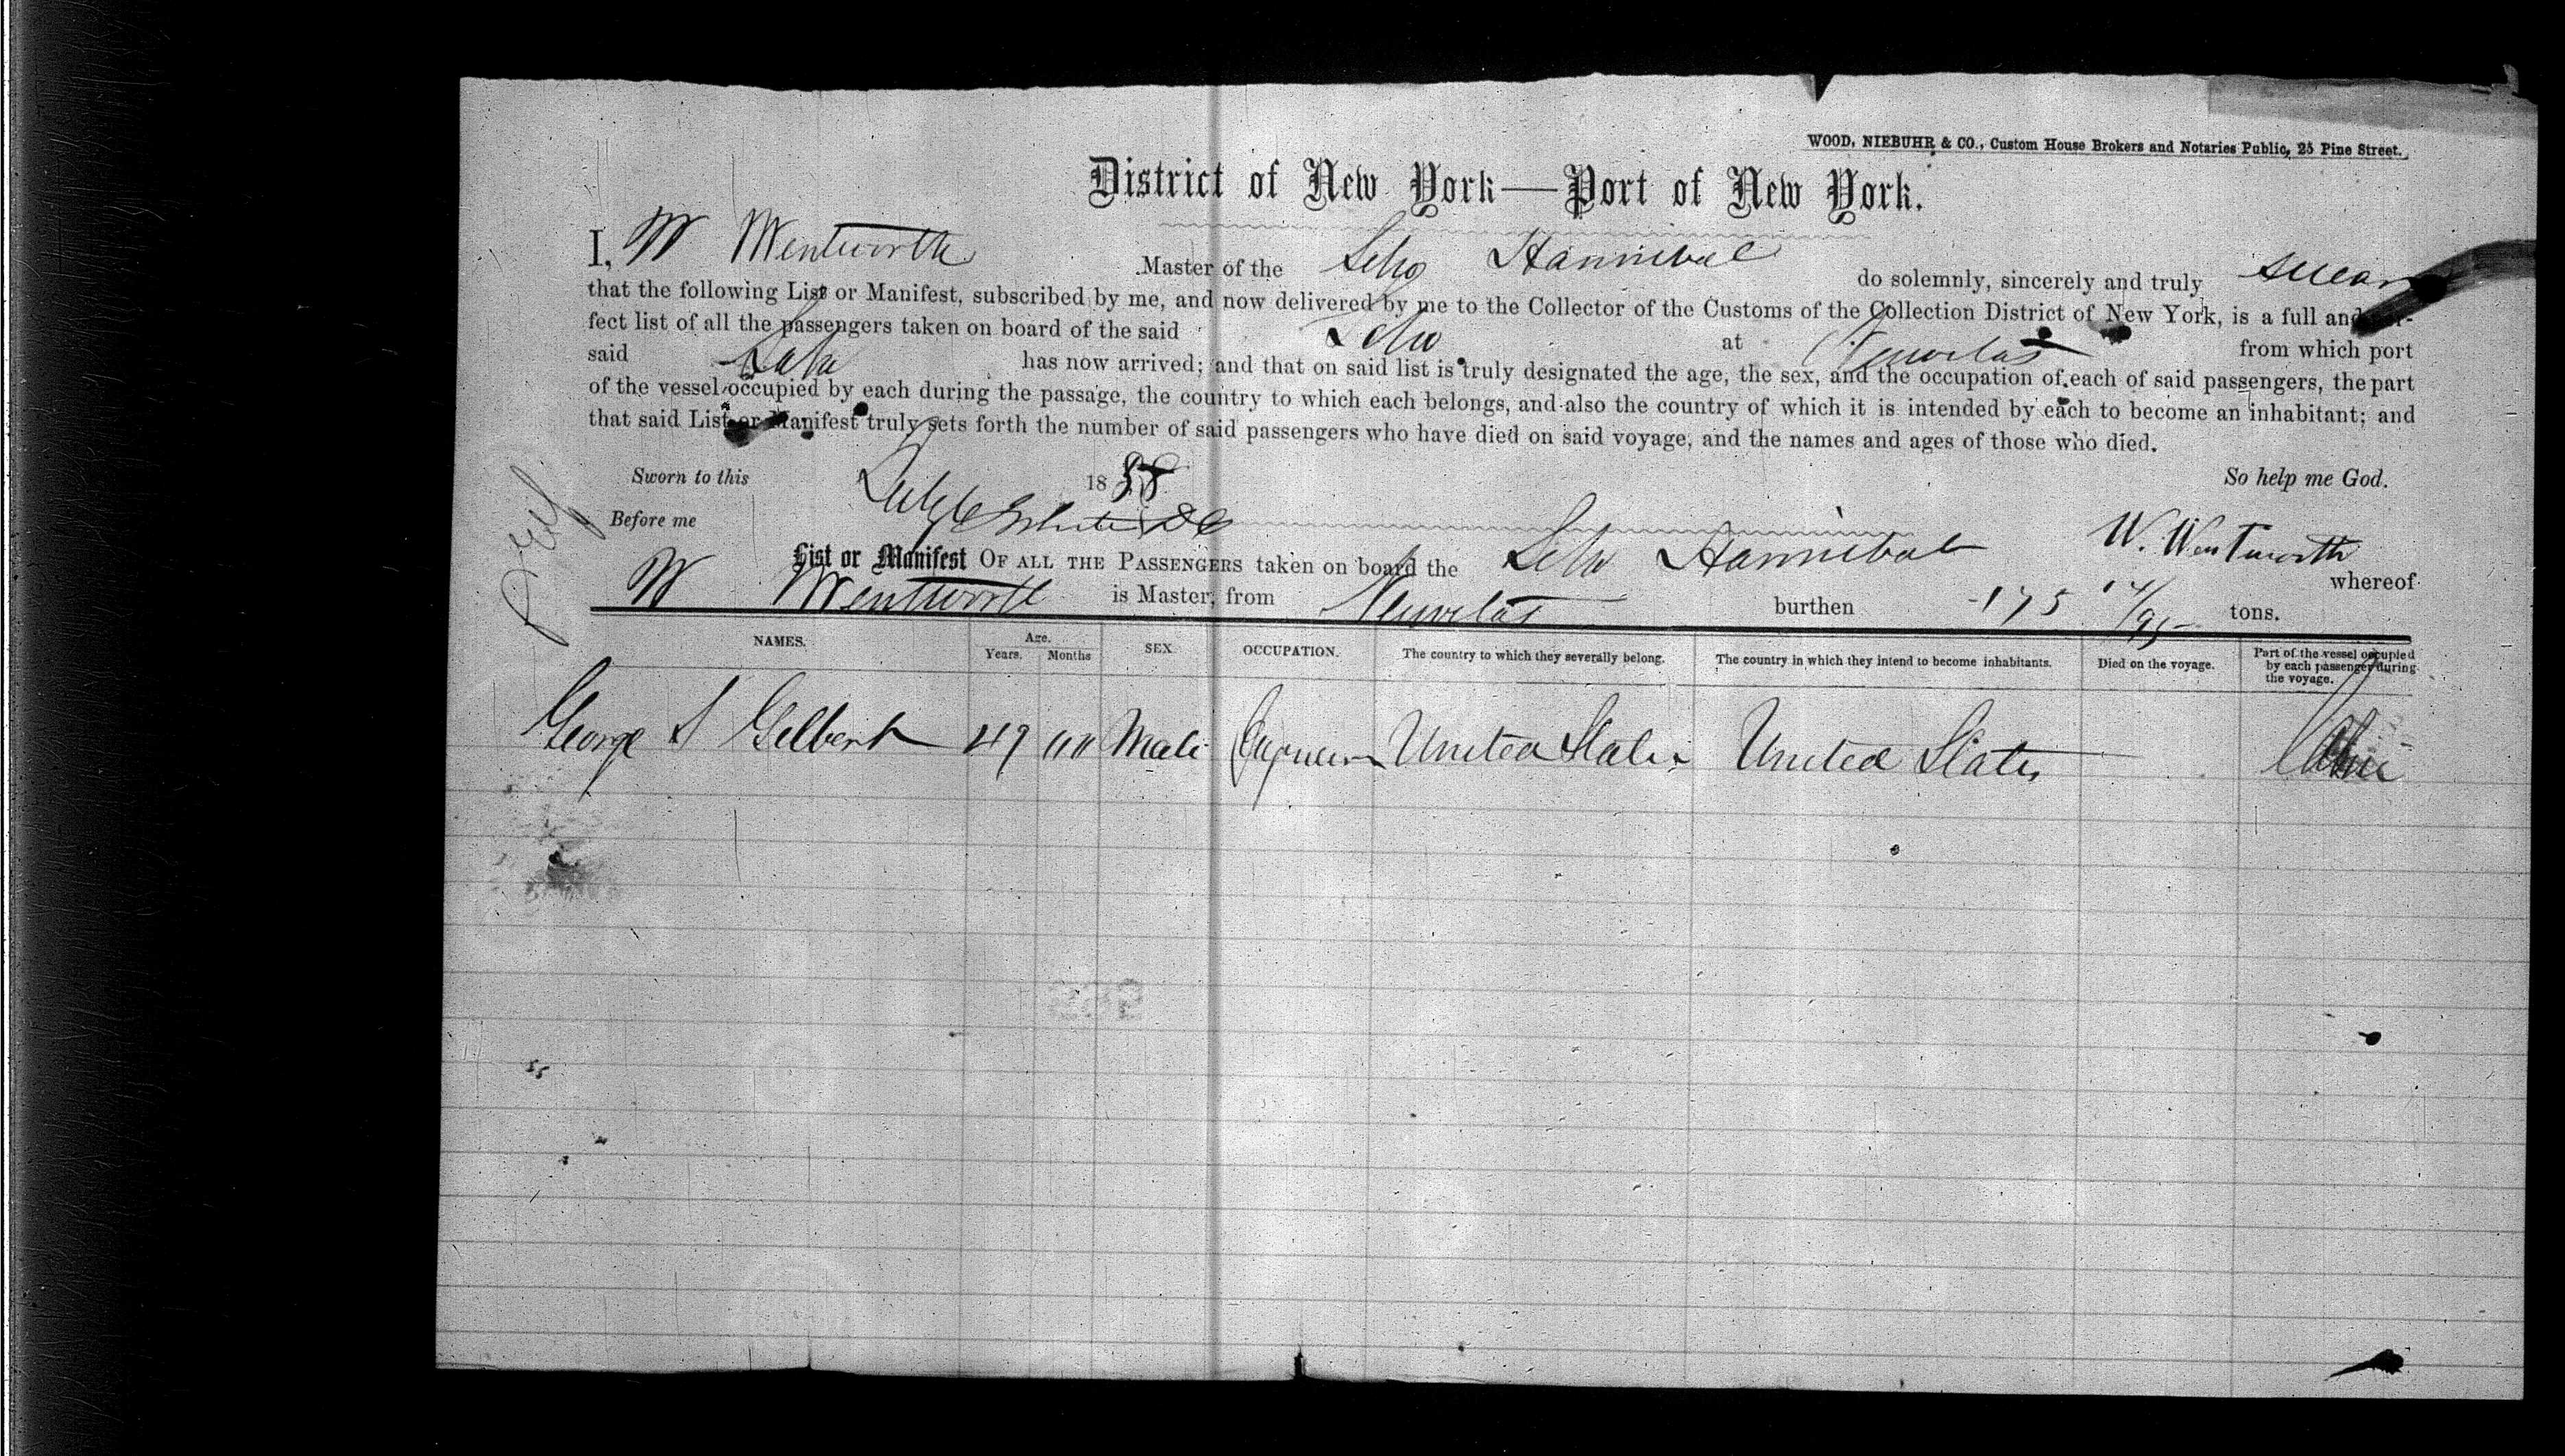 WOOD, NIEBUHR & CO., Custom House Brokers and Notaries Public, 25 Pine Street.
District of New York—Port of New York.
I, W Wentworth Master of the Schr Hannibal do solemnly, sincerely and truly swear
that the following List or Manifest, subscribed by me, and now delivered by me to the Collector of the Customs of the Collection District of New York, is a full and per-
fect list of all the passengers taken on board of the said Schr at Nuevitas from which port
said Schr has now arrived; and that on said list is truly designated the age, the sex, and the occupation of each of said passengers, the part
of the vessel occupied by each during the passage, the country to which each belongs, and also the country of which it is intended by each to become an inhabitant; and
that said List or Manifest truly sets forth the number of said passengers who have died on said voyage, and the names and ages of those who died.
Sworn to this July 6 1858 So help me God.
Before me W. Wentworth
List or Manifest OF ALL THE PASSENGERS taken on board the Schr Hannibal whereof
W Wentworth is Master, from Nuevitas burthen 175 /95 tons.
NAMES. Age. Years. Months SEX. OCCUPATION. The country to which they severally belong. The country in which they intend to become inhabitants. Died on the voyage. Part of the vessel occupied by each passenger during the voyage.
George S Gilbert 49 Male Engineer United States United States Cabin